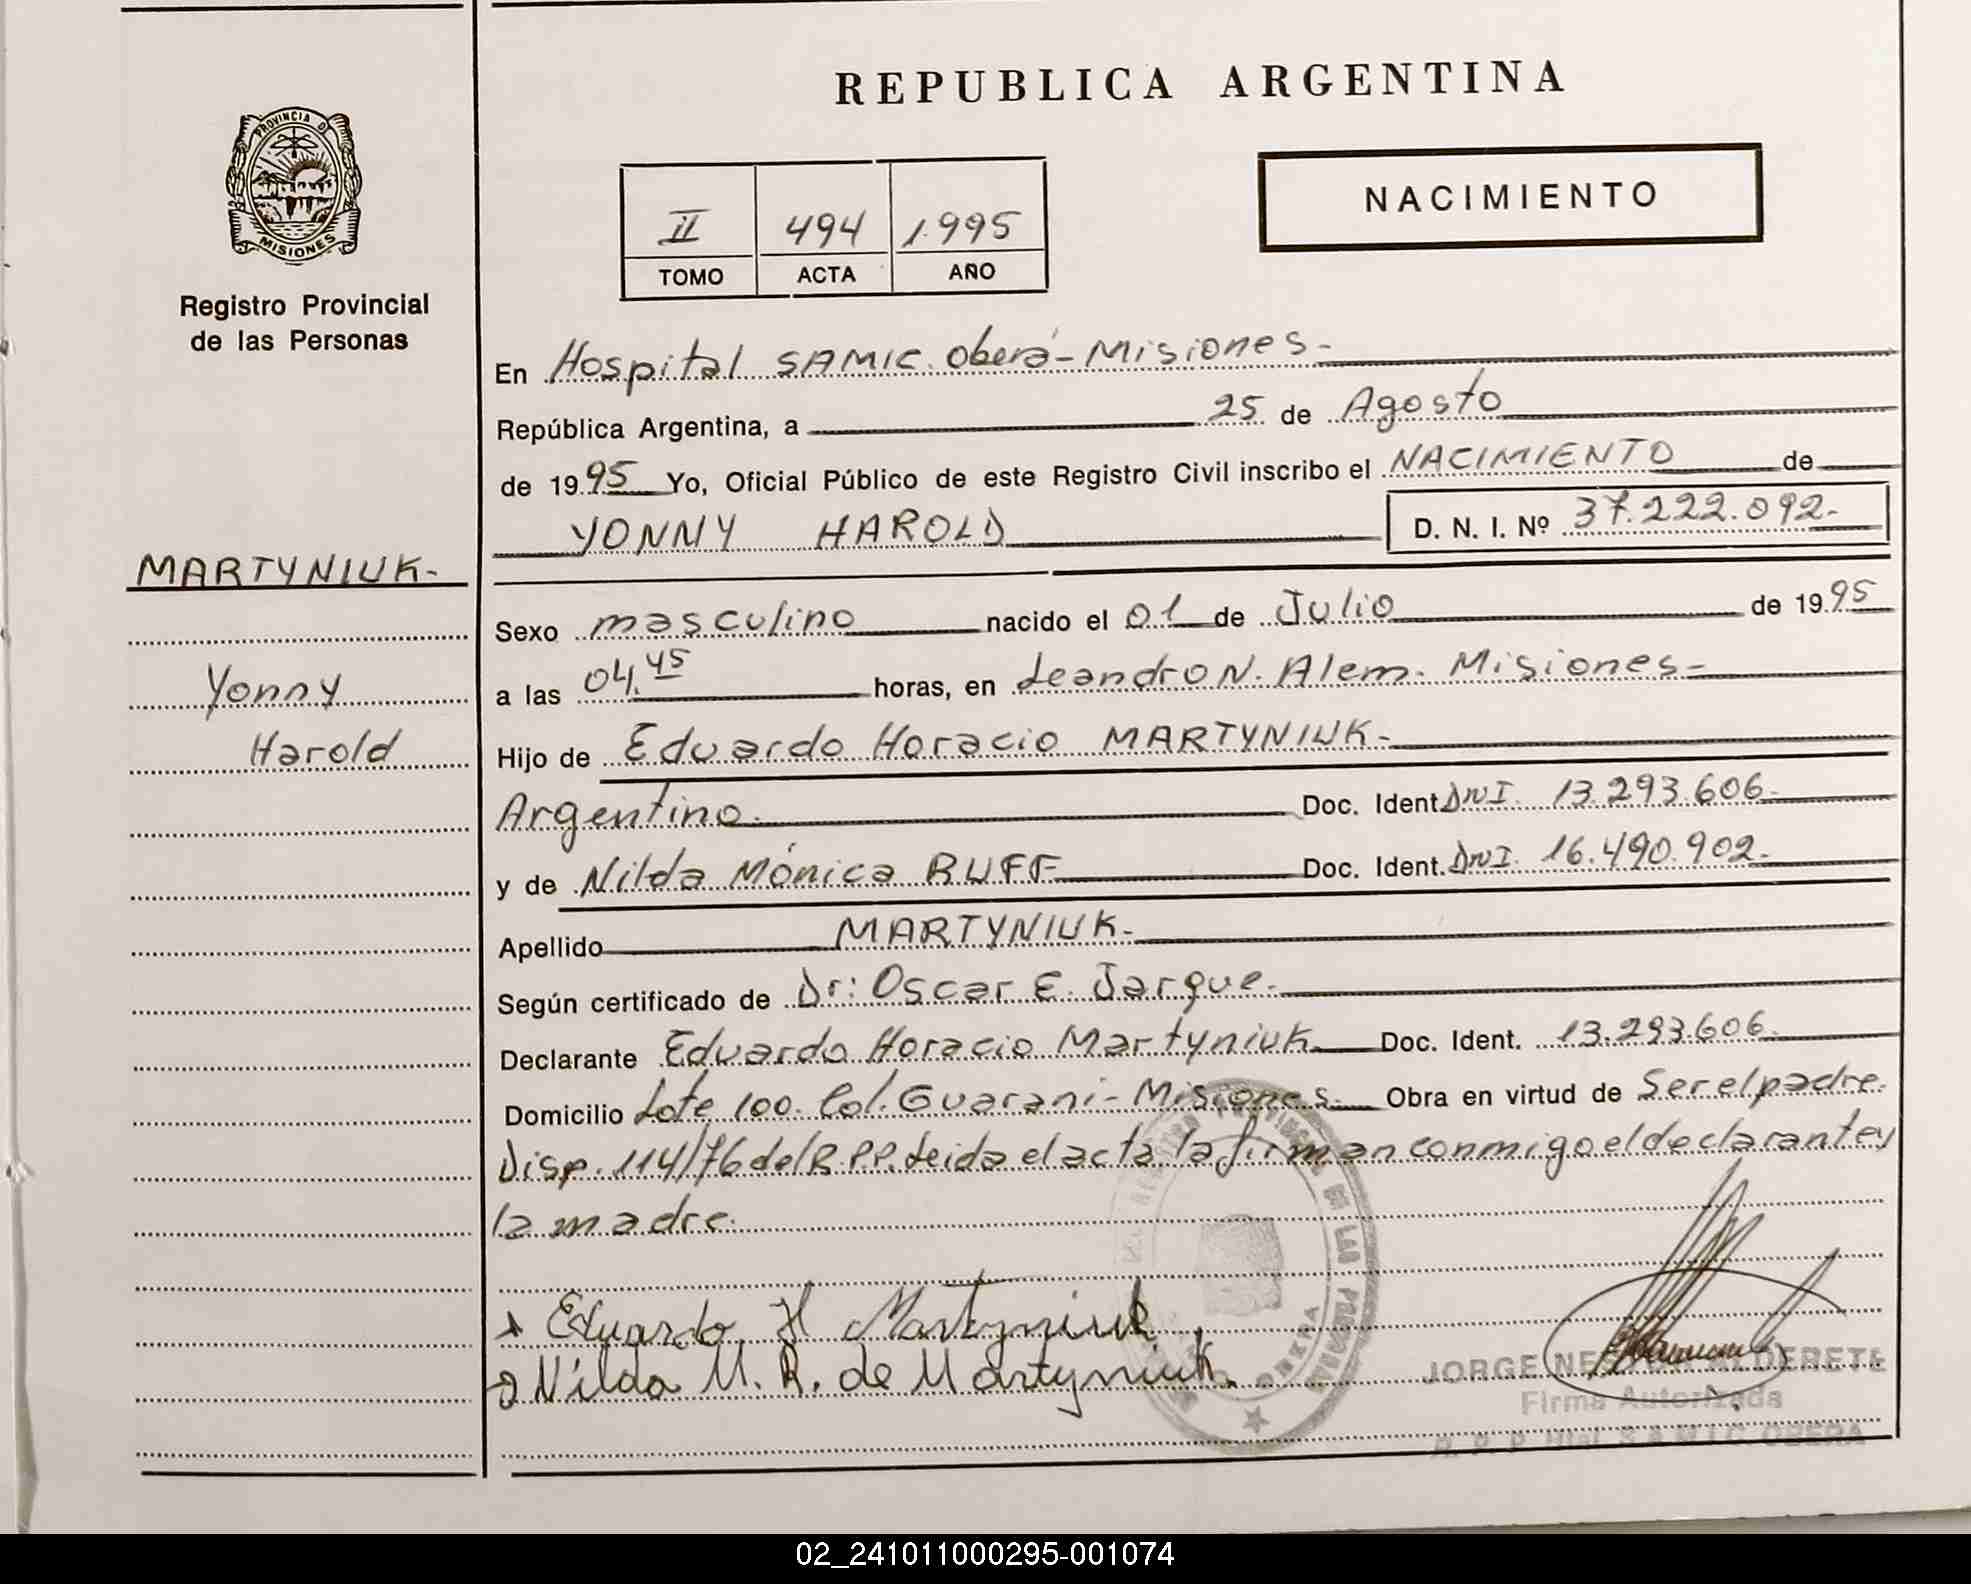 REPUBLICA ARGENTINA
PROVINCIA D
MISIONES
Registro Provincial
de las Personas
II 494 1.995
TOMO ACTA AÑO
NACIMIENTO
En Hospital SAMIC. Oberá - Misiones -
República Argentina, a 25 de Agosto
de 1995 Yo, Oficial Público de este Registro Civil inscribo el NACIMIENTO de
YONNY HAROLD D. N. I. Nº 37.222.092.-
MARTYNIUK-
Sexo masculino nacido el 01 de Julio de 1995
Yonny
a las 04.45 horas, en Leandro N. Alem. Misiones-
Harold
Hijo de Eduardo Horacio MARTYNIUK-
Argentino. Doc. Ident. DNI. 13.293.606-
y de Nilda Mónica RUFF Doc. Ident. DNI. 16.490.902-
Apellido MARTYNIUK-
Según certificado de Dr: Oscar E. Jarque.-
Declarante Eduardo Horacio Martyniuk Doc. Ident. 13.293.606-
Domicilio Lote 100. Col. Guaraní - Misiones. Obra en virtud de Ser el padre.
Disp. 114/76 del R.P.P. Leida el acta la firman conmigo el declarante y
la madre.
Eduardo H Martyniuk
Nilda M. R. de Martyniuk.
DE LAS
OBERA
JORGE ALDERETE
Firma Autorizada
R. P. P. Htal. S.A.M.I.C. OBERA
02_241011000295-001074